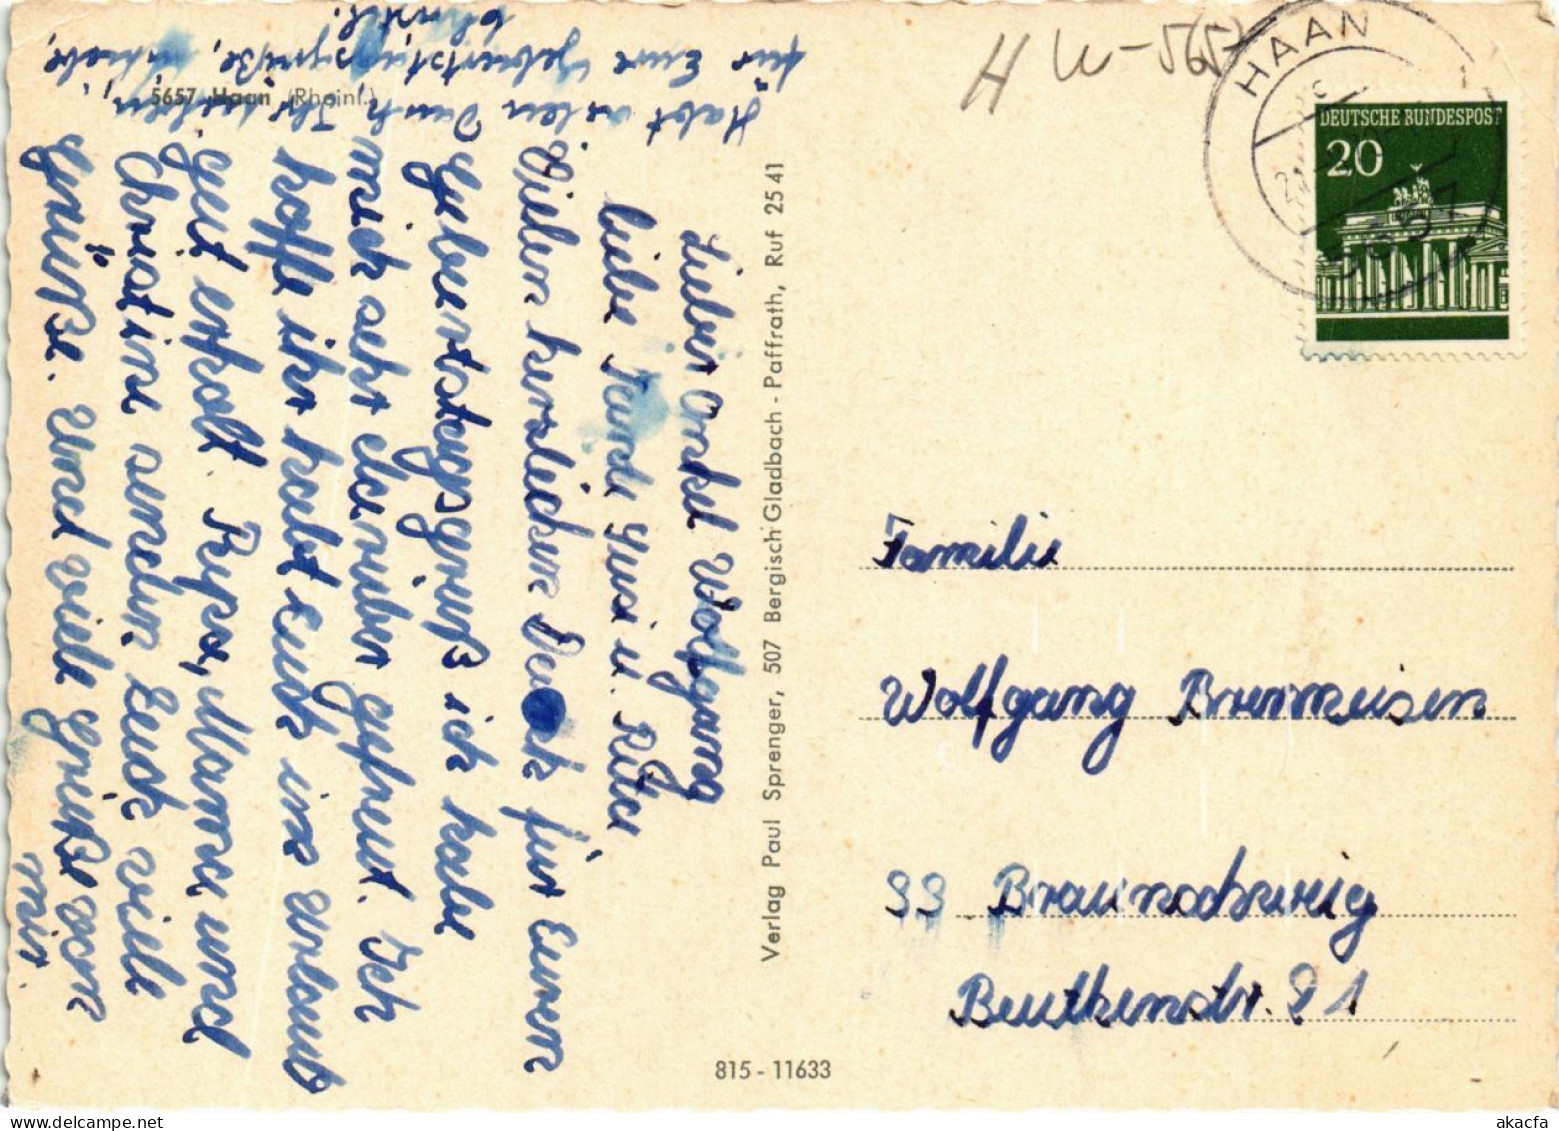 Lieber Onkel Wolfgang
liebe Tante Gusi u. Rita
Vielen herzlichen Dank für Euren
Geburtstagsgruß ich habe
mich sehr darüber gefreut. Ich
hoffe ihr habt Euch im Urlaub
gut erholt. Papa, Mama und
Christine senden Euch viele
Grüße. Und viele Grüße von
mir.
Habt vielen Dank, Ihr Lieben,
für Eure Geburtstagsgrüße,
5657 Haan (Rheinl.)
Verlag Paul Sprenger, 507 Bergisch Gladbach - Paffrath, Ruf 25 41
815 - 11633
HAAN
5657
DEUTSCHE BUNDESPOST
20
Familie
Wolfgang
33 Braunschweig
Beuthenstr. 21
akacfa